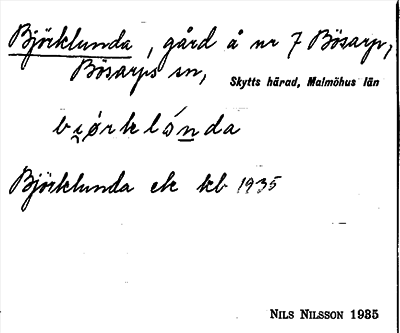 Björklunda, gård å nr 7 Bösarp,
Bösarps sn, Skytts härad, Malmöhus län
bi̯ørklónda
Björklunda ek kb 1935
NILS NILSSON 1935